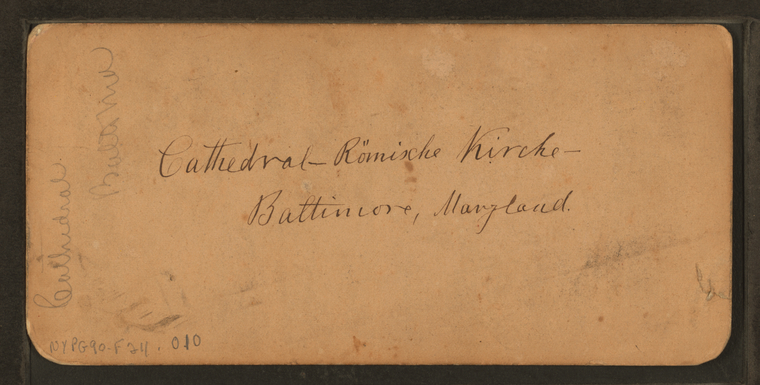 Cathedral – Römische Kirche –
Battimore, Maryland.
Cathedral.
Balto Md
NYPG90-F24. 010